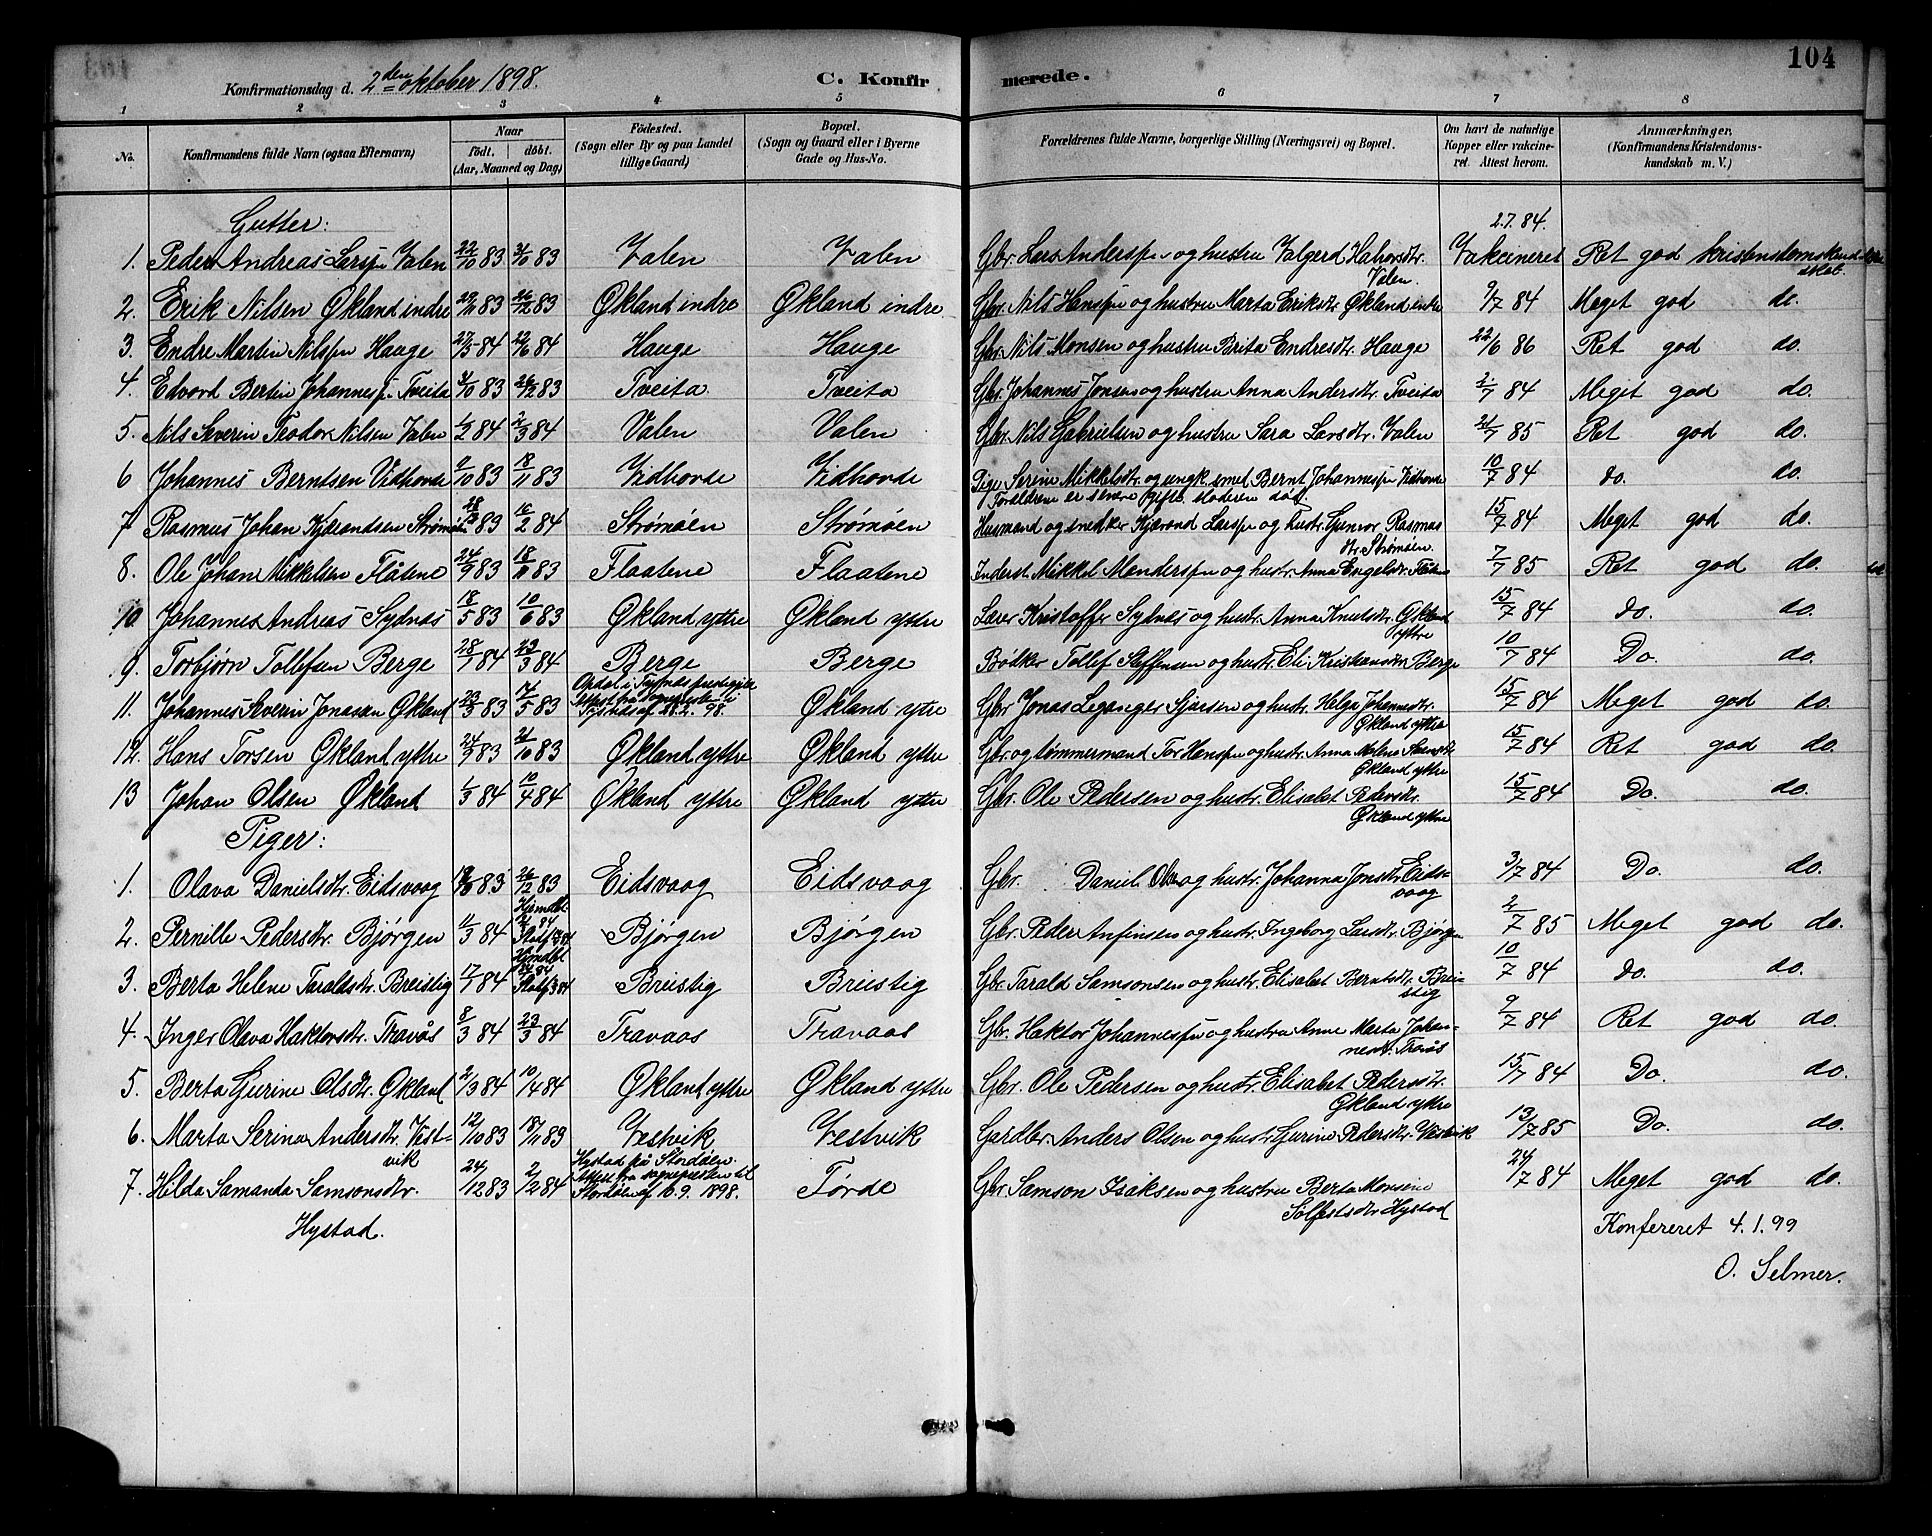 104
Konfirmationsdag d. 2den oktober 1898. C. Konfir merede.
1 2 3 4 5 6 7 8
No. Konfirmandens fulde Navn (ogsaa Efternavn) Naar födt. döbt. (Aar, Maaned og Dag) Födested. (Sogn eller By og paa Landet tillige Gaard) Bopæl. (Sogn og Gaard eller i Byerne Gade og Hus-No. Forældrenes fulde Navne, borgerlige Stilling (Næringsvei) og Bopæl. Om havt de naturlige Kopper eller vakcineret. Attest herom. Anmærkninger. (Konfirmandens Kristendomskundskab m. V.)
Gutter:
1. Peder Andreas Larsen Valen 22/10 83 31/10 83 Valen Valen Gbr. Lars Andersen og hustru Valgerd Halvorsdtr. Valen. 2.7.84. Vakcineret Ret god kristendomskundskab
2. Erik Nilsen Økland indre 83 26/12 83 Økland indre Økland indre. Gbr. Nils Hansen og hustru Marta Eriksdtr. Økland indre 9/7 84 Meget god do.
3. Endre Martin Nilsen Hauge 27/5 84 22/6 84 Hauge Hauge Gbr. Nils Monsen og hustru Brita Endresdtr. Hauge 22/6 86 Ret god do.
4. Edvard Bertin Johannesen Tveita 83 26/12 83 Tveita Tveita Gbr. Johannes Jonsen og hustru Anna Andersdtr. Tveita 2/7 84 Meget god do.
5. Nils Severin Teodor Nilsen Valen 1/2 84 2/3 84 Valen Valen Gbr. Nils Gabrielsen og hustru Sara Larsdtr. Valen 21/7 85 Ret god do.
6 Johannes Berntsen Vidhovde 9/10 83 18/11 83 Vidhovde Vidhovde Pige Serine Mikkelsdtr. og ungk. smed Bernt Johannesen Vidhovde Foreldrene er senere gifte. død.
10/7 84 do. do.
7 Rasmus Johan Kjærandsen Strømøen 83 16/2 84 Strømøen Strømøen Husmand og snedker Kjærand Larsen og hustr. Gunvor Rasmusdtr. Strømøen. 15/7 84 Meget god do.
8. Ole Johan Mikkelsen Flåtene 24/9 83 18/11 83 Flaatene Flaatene Inderst Mikkel Mondersen og hustr. Anna Engelsdtr. 7/7 85 Ret god do.
10. Johannes Andreas Sydnæs 18/5 83 10/6 83 Økland yttre Økland yttre Lærer Kristoffer Sydnæs og hustr. Anna Knutsdtr. Økland yttre 15/7 84 do. do.
9. Torbjørn Tollefsen Berge 28/1 84 23/3 84 Berge Berge Bødker Tollef Steffensen og hustr. Eli Kristiansdtr. Berge 10/7 84 Do. do.
11. Johannes Severin Jonasen Økland 23/3 83 14/5 83 Opdal i Tysnæs prestegjeld. Attest fra sognepresten til Tysnæs af 28.2.98. Økland ytre Gbr. Jonas Leganger Sjursen og hustr. Helga Johannesdtr. Økland yttre 15/7 84 Meget god do.
12. Hans Torsen Økland yttre 24/9 83 21/10 83 Økland yttre Økland yttre Gbr. og tømmermand Tor Hansen og hustr. Anna Malena Økland yttre 15/7 84 Ret god do.
13 Johan Olsen Økland 1/3 84 10/4 84 Økland yttre Økland yttre Gbr. Ole Pedersen og hustr. Elisabet Pedersdtr. Økland yttre 15/7 84 Do. do.
Piger:
1. Olava Danielsdtr. Eidsvaag 83 26/12 83 Eidsvaag Eidsvaag Gbr. Daniel Olsen og hustr. Johanna Jonsdtr. Eidsvaag 3/7 84 Do. do.
2. Pernille Pedersdtr. Bjørgen 11/3 84 Hjemdøbt Bjørgen Bjørgen Gbr. Peder Anfinsen og hustr. Ingeborg Larsdtr. Bjørgen 2/7 85 Meget god do.
3. Berta Helene Taraldsdtr. Breistig 84 Hjemdøbt Breistig Breistig Gbr. Tarald Samsonsen og hustr. Elisabet Berntsdtr. Breistig 10/7 84 do. do.
4. Inger Olava Haktorsdtr. Travås 8/3 84 23/3 84 Travaas Travaas Gbr. Haktor Johannesen og hustru Anne Marta Johannesdtr. Travås 9/7 84 Ret god do.
5. Berta Gurine Olsdtr. Økland 2/3 84 10/4 84 Økland yttre Økland yttre Gbr. Ole Pedersen og hustr. Elisabet Pedersdtr. Økland yttre 15/7 84 Do. do.
6. Marta Serina Andersdtr. Vestvik 12/10 83 18/11 83 Vestvik Vestvik Gardbr. Anders Olsen og hustr. Gurine Pedersdtr. Vestvik 13/7 85 Do. do.
7. Hilda Samanda Samsonsdtr. Hystad. 24/12 83 2/2 84 Hystad på Stordøen. Attest fra sognepresten til Stordøen af 16.9.1898. Førde Gbr. Samson Isaksen og hustru Berta Monsine Solfestsdtr. Hystad 24/7 84 Meget god do.
Konfereret 4.1.99
O. Selmer.